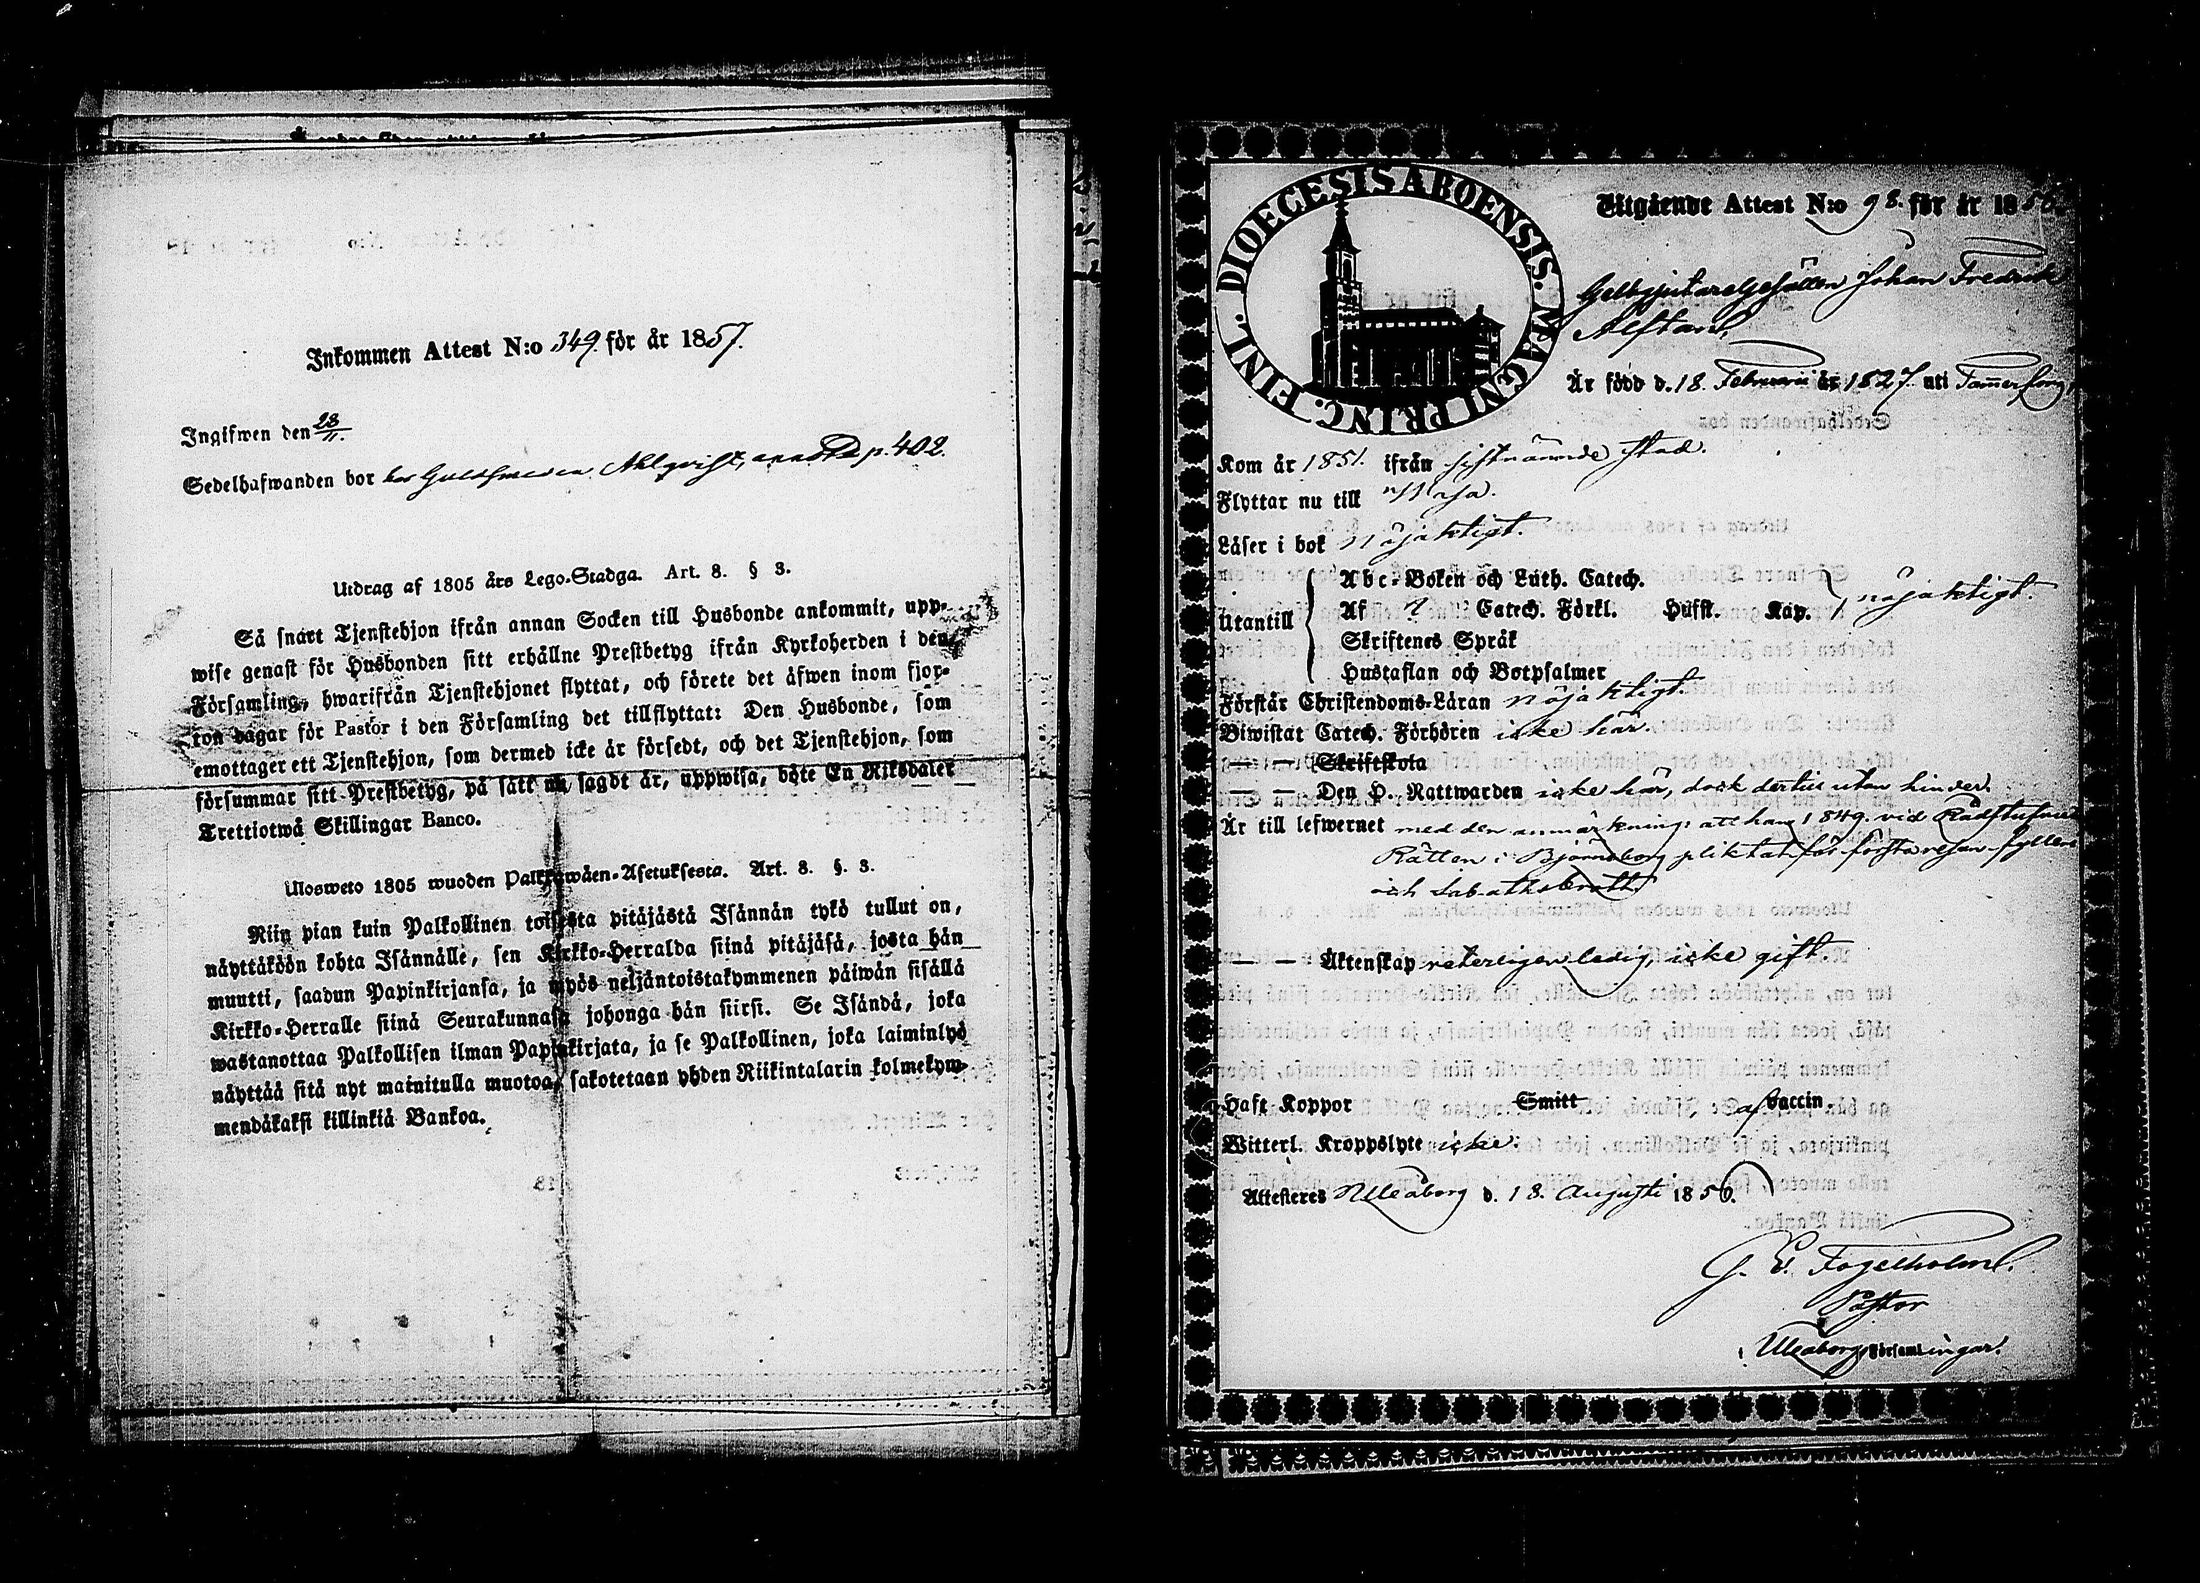 Inkommen Attest N:o 349. för år 1857.
Ingifwen den 28/11.
Sedelhafwanden bor hos Guldsmeden Ahlqvist, p. 402.
Utdrag af 1805 års Lego-Stadga. Art. 8. § 3.
Så snart Tjenstehjon ifrån annan Socken till Husbonde ankommit, upp-
wise genast för Husbonden sitt erhållne Prestbetyg ifrån Kyrkoherden i den
Församling, hwarifrån Tjenstehjonet flyttat, och förete det äfwen inom fjor-
ton dagar för Pastor i den Församling det tillflyttat: Den Husbonde, som
emottager ett Tjenstehjon, som dermed icke är försedt, och det Tjenstehjon, som
försummar sitt Prestbetyg, på sätt nu sagdt är, uppwisa, böte En Riksdaler
Trettiotwå Skillingar Banco.
Ulosweto 1805 wuoden Palkkawäen-Asetuksesta. Art. 8. §. 3.
Niin pian kuin Palkollinen toisesta pitäjästä Isännän tykö tullut on,
näyttäköön kohta Isännälle, sen Kirkko-Herralda siinä pitäjäsä, josta hän
muutti, saadun Papinkirjansa, ja myös neljäntoistakymmenen päiwän sisällä
Kirkko-Herralle siinä Seurakunnasa johonga hän siirsi. Se Isändä, joka
wastanottaa Palkollisen ilman Papinkirjata, ja se Palkollinen, joka laiminlyö
näyttää sitä nyt mainitulla muotoa, sakotetaan yhden Riikintalarin kolmekym-
mendäkaksi killinkiä Bankoa.
DIOECESIS ABOENSIS. MAGNI PRINC. FINL.
Utgående Attest N:o 98. för år 1856.
Gelbgjutaregesällen Johan Fredrik
Alftan,
Är född d. 18. Februarii år 1827. uti Tammerfors,
Kom år 1851. ifrån sistnämnde stad.
Flyttar nu till Wasa.
Läser i bok nöjaktigt.
Utantill
Abc-Boken och Luth. Catech.
Af Catech. Förkl. Hufst. Kap. nöjaktigt.
Skriftenes Språk
Hustaflan och Botpsalmer
Förstår Christendoms-Läran nöjaktigt.
Biwistat Catech. Förhören icke här.
— — Skriftskola
— — Den H. Nattwarden icke här, dock dertill utan hinder.
Är till lefwernet med den anmärkning: att han 1849. vid Rådstufvu
Rätten i Björneborg pliktat för första resan fylleri
och Sabathsbrott.
— — Äktenskap veterligen ledig, icke gift.
Haft Koppor Smitt af vaccin.
Witterl. Kroppslyte icke.
Attesteres Uleåborg d. 18. Augusti 1856.
G. E. Fogelholm.
Pastor
i Uleaborgs Församlingar.